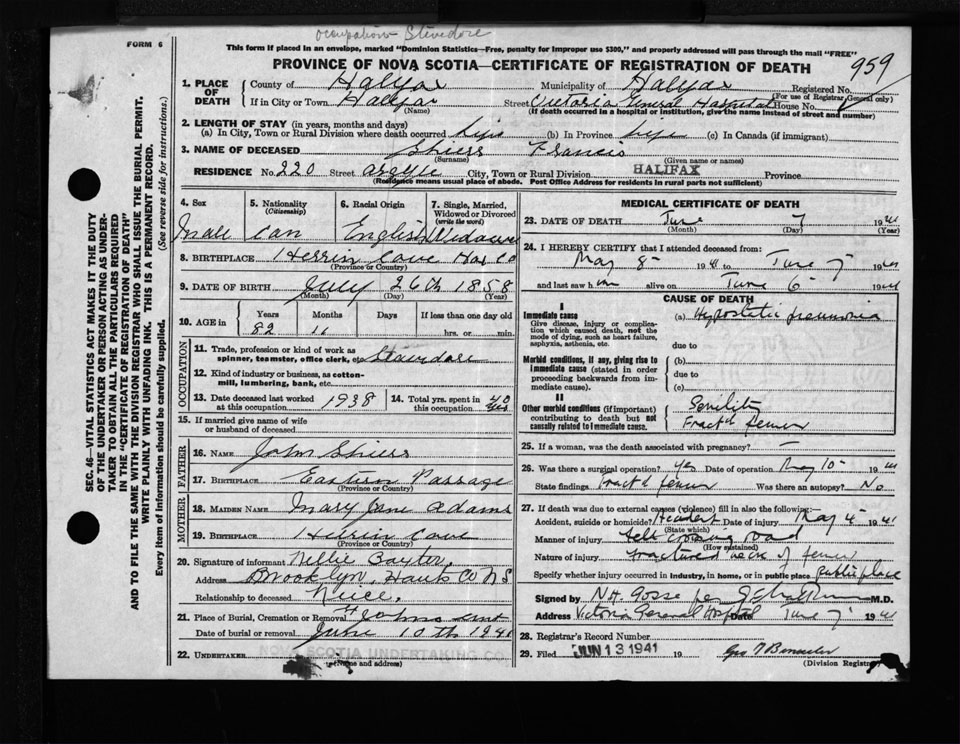 occupation - Stevedore
FORM 6
This form if placed in an envelope, marked "Dominion Statistics—Free, penalty for improper use $300," and properly addressed will pass through the mail "FREE"
PROVINCE OF NOVA SCOTIA—CERTIFICATE OF REGISTRATION OF DEATH
959
1. PLACE OF DEATH
County of Halifax Municipality of Halifax Registered No.
(For use of Registrar General only)
If in City or Town Halifax Street Victoria General Hospital House No.
(Name) (If death occurred in a hospital or institution, give the name instead of street and number)
2. LENGTH OF STAY (in years, months and days)
(a) In City, Town or Rural Division where death occurred life (b) In Province life (c) In Canada (if immigrant)
3. NAME OF DECEASED Shiers Francis
(Surname) (Given name or names)
RESIDENCE No. 220 Street Argyle City, Town or Rural Division HALIFAX Province
(Residence means usual place of abode. Post Office Address for residents in rural parts not sufficient)
4. Sex
Male
5. Nationality
(Citizenship)
Can
6. Racial Origin
English
7. Single, Married, Widowed or Divorced
(write the word)
Widower
8. BIRTHPLACE Herrin Cove Hax Co
(Province or Country)
9. DATE OF BIRTH July 26th 1858
(Month) (Day) (Year)
10. AGE in
Years Months Days If less than one day old
82 hrs. or min.
OCCUPATION
11. Trade, profession or kind of work as spinner, teamster, office clerk, etc. Stavidore
12. Kind of industry or business, as cotton-mill, lumbering, bank, etc.
13. Date deceased last worked at this occupation 1938
14. Total yrs. spent in this occupation 40 yrs
15. If married give name of wife or husband of deceased
FATHER
16. NAME John Shiers
17. BIRTHPLACE Eastern Passage
(Province or Country)
MOTHER
18. MAIDEN NAME Mary Jane Adams
19. BIRTHPLACE Cove
(Province or Country)
20. Signature of informant Nellie Baxter
Address Brooklyn, Hants Co N S
Relationship to deceased Neice.
21. Place of Burial, Cremation or Removal St Johns
Date of burial or removal June 10th 1941
22. UNDERTAKER NOVA SCOTIA UNDERTAKING CO.
(Name and address)
MEDICAL CERTIFICATE OF DEATH
23. DATE OF DEATH June 7 1941
(Month) (Day) (Year)
24. I HEREBY CERTIFY that I attended deceased from:
May 8 1941 to June 7 1941
and last saw him alive on June 6 1941
CAUSE OF DEATH
I
Immediate cause
Give disease, injury or complication which caused death, not the mode of dying, such as heart failure, asphyxia, asthenia, etc.
(a) Hypostatic pneumonia
due to
Morbid conditions, if any, giving rise to immediate cause (stated in order proceeding backwards from immediate cause).
(b)
due to
(c)
II
Other morbid conditions (if important) contributing to death but not causally related to immediate cause.
Senility
Fract'd femur
25. If a woman, was the death associated with pregnancy? —
26. Was there a surgical operation? yes Date of operation May 10 1941
State findings Fract'd femur Was there an autopsy? No
27. If death was due to external causes (violence) fill in also the following:
Accident, suicide or homicide? Accident Date of injury May 4 1941
(State which)
Manner of injury fell crossing road
(How sustained)
Nature of injury Fractured neck of femur
Specify whether injury occurred in industry, in home, or in public place public place
Signed by N.H. Gosse per M.D.
Address Victoria General Hospital Date June 7 1941
28. Registrar's Record Number
29. Filed JUN 13 1941 19
(Division Registrar)
SEC. 46—VITAL STATISTICS ACT MAKES IT THE DUTY
OF THE UNDERTAKER OR PERSON ACTING AS UNDER-
TAKER TO OBTAIN ALL THE PARTICULARS REQUIRED
IN THE "CERTIFICATE OF REGISTRATION OF DEATH"
AND TO FILE THE SAME WITH THE DIVISION REGISTRAR WHO SHALL ISSUE THE BURIAL PERMIT.
WRITE PLAINLY WITH UNFADING INK. THIS IS A PERMANENT RECORD.
Every item of information should be carefully supplied. (See reverse side for instructions.)